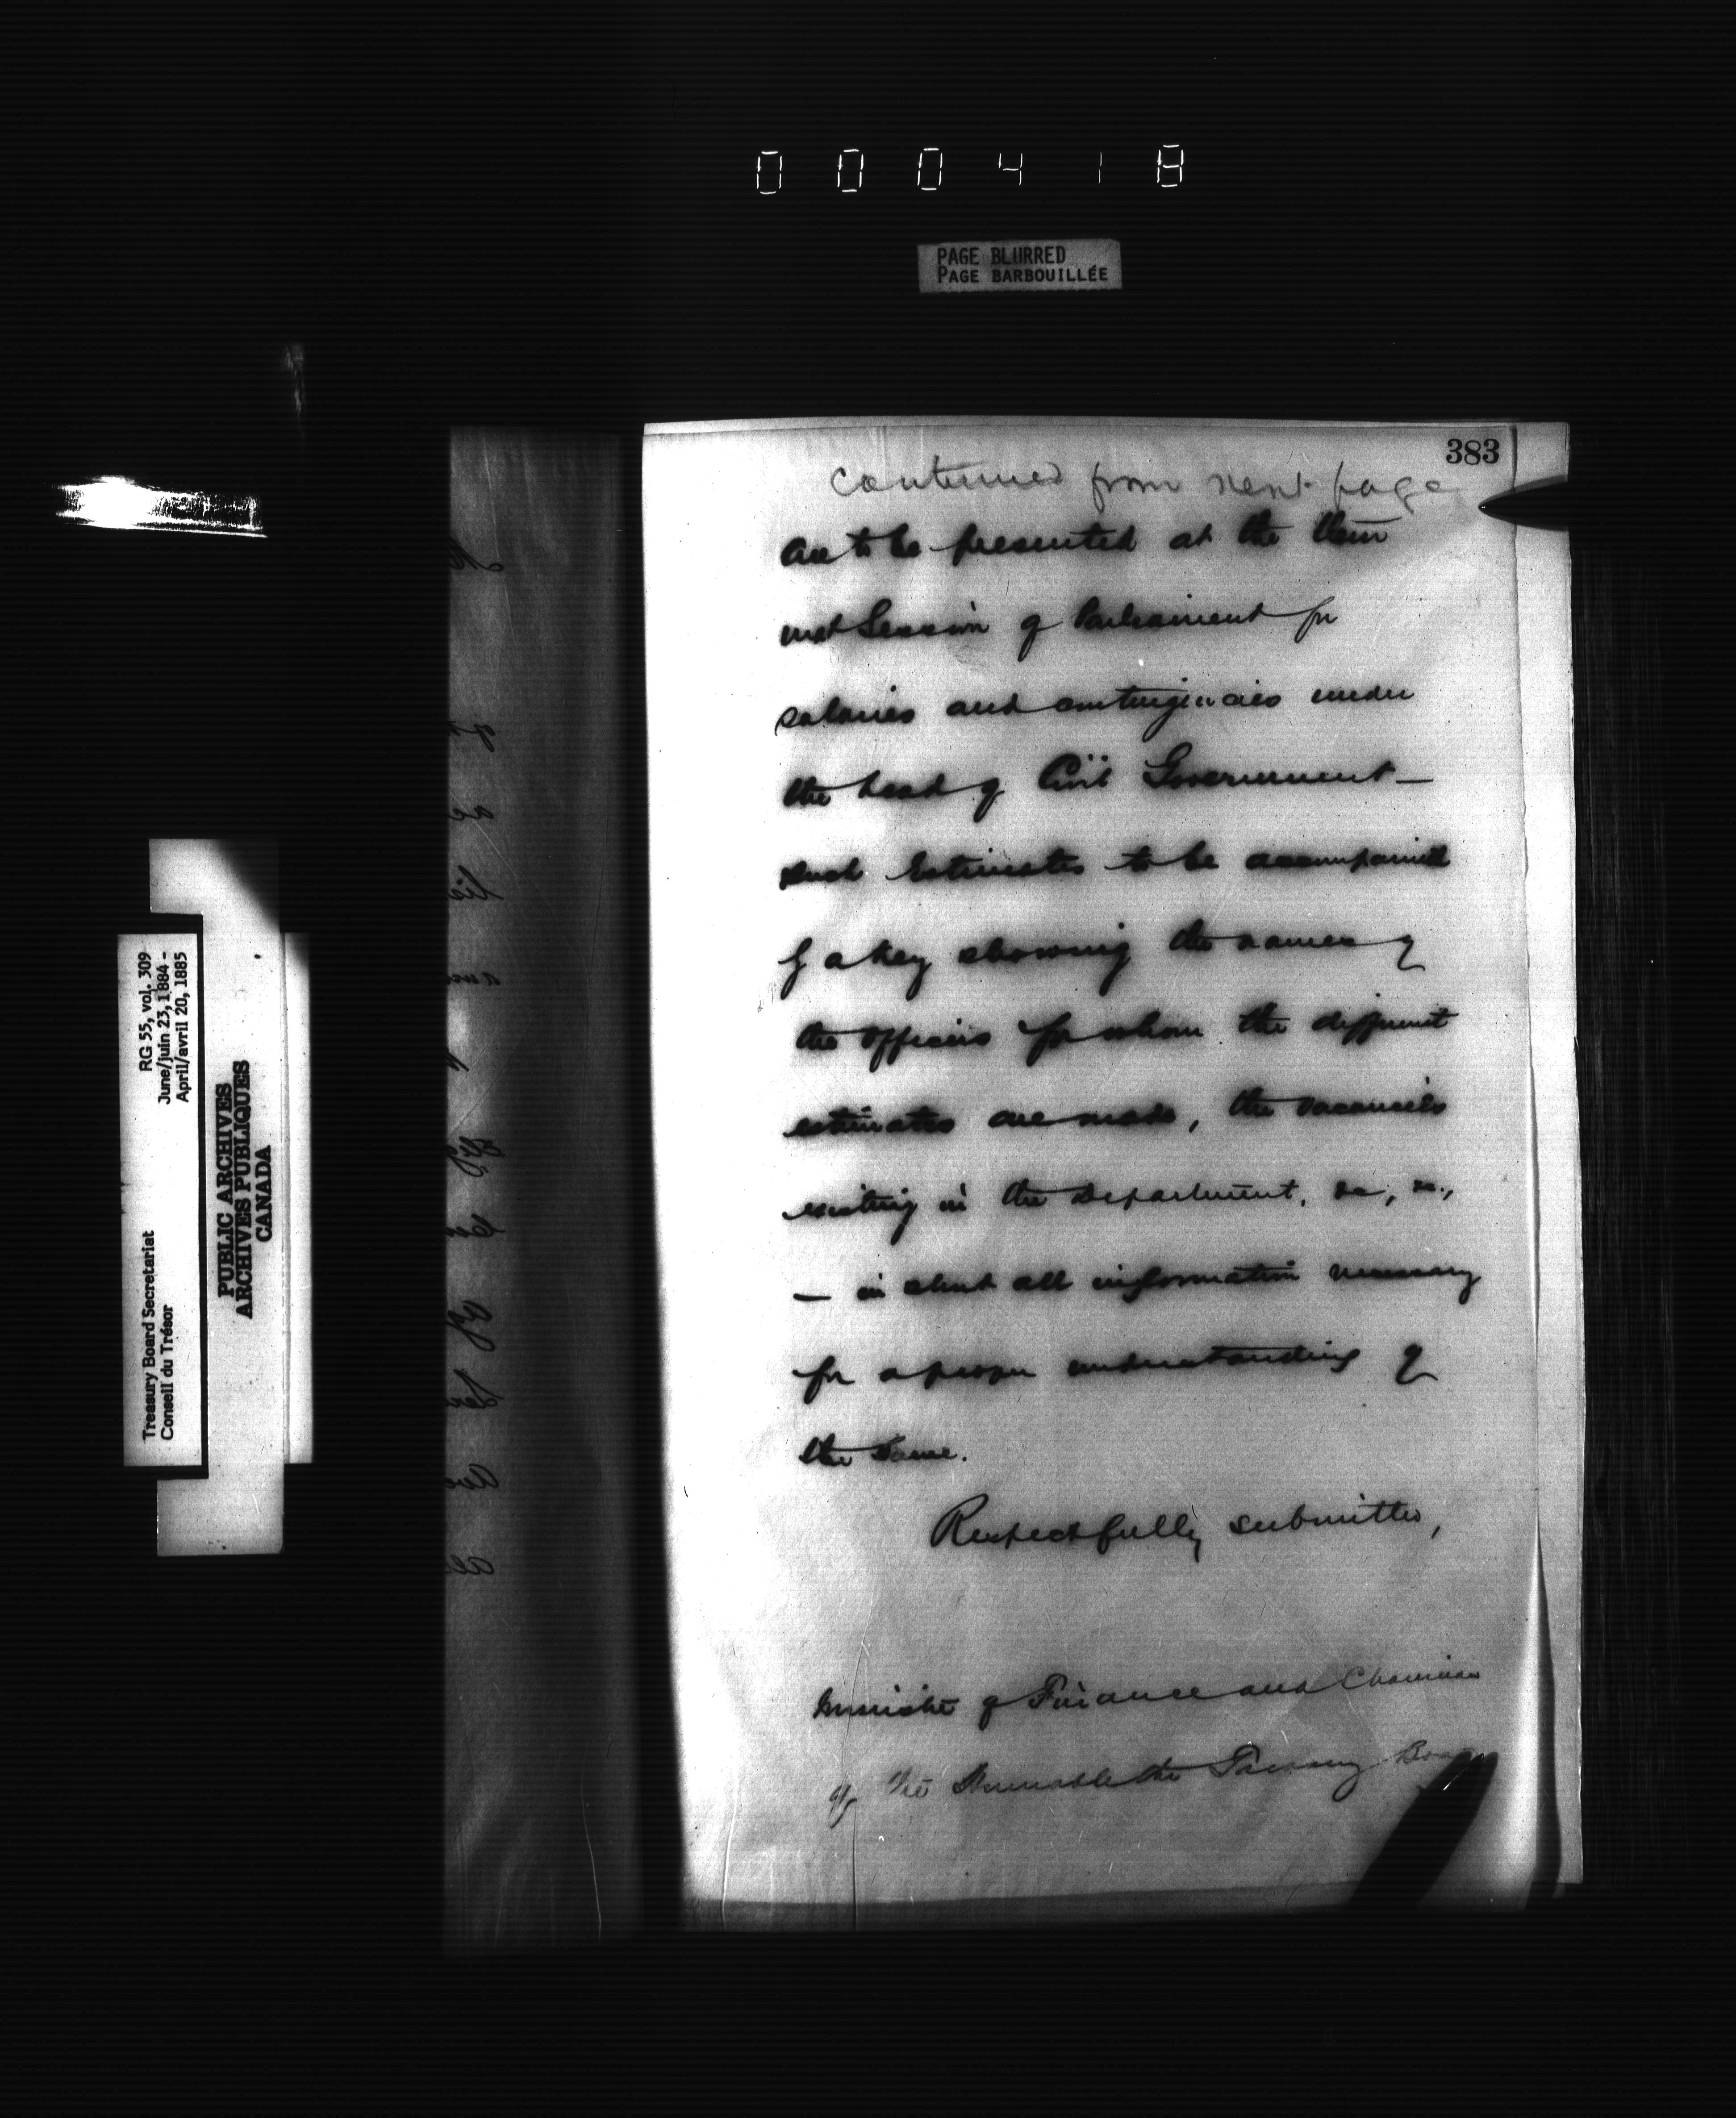 000418
PAGE BLURRED
PAGE BARBOUILLÉE
383
continued from next page
are to be presented at the then
next Session of Parliament for
salaries and contingencies under
the head of Civil Government —
such Estimates to be accompanied
by a key showing the names of
the officers for whom the different
estimates are made, the vacancies
existing in the Department, &c, &c.,
— in short all information necessary
for a proper understanding of
the same.
Respectfully submitted,
Minister of Finance and Chairman
of the Honorable the Treasury Board
RG 55, vol. 309
June/juin 23, 1884 -
April/avril 20, 1885
Treasury Board Secretariat
Conseil du Trésor
PUBLIC ARCHIVES
ARCHIVES PUBLIQUES
CANADA